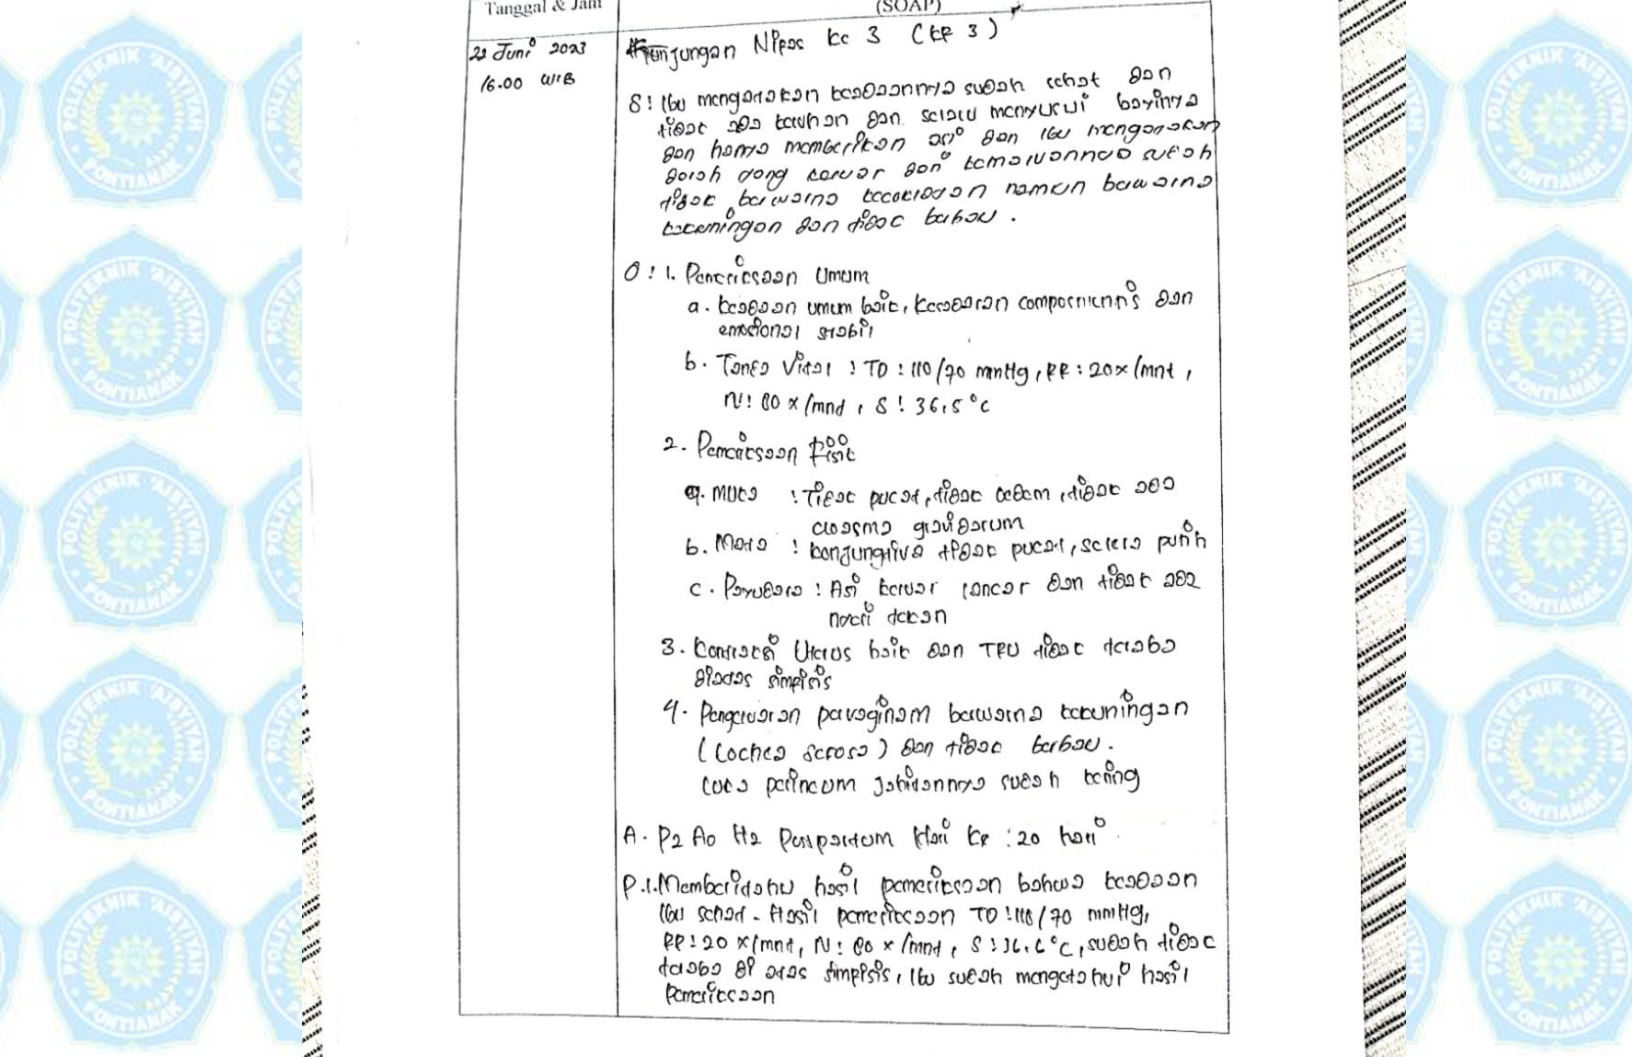 Tanggal & Jam
(SOAP)
22 Juni 2023
16.00 WIB
Kunjungan Nifas ke 3 (KF 3)
S : Ibu mengatakan keadaannya sudah sehat dan
tidak ada keluhan dan selalu menyusui bayinya
dan hanya memberikan asi dan ibu mengatakan
darah yang keluar dari kemaluannya sudah
tidak berwarna kecoklatan namun berwarna
kekuningan dan tidak berbau.
O : 1. Pemeriksaan Umum
a. keadaan umum baik, kesadaran composmentis dan
emosional stabil
b. Tanda Vital : TD : 110/70 mmHg, RR : 20x/mnt,
N : 80 x/mnt, S : 36,5 °c
2. Pemeriksaan fisik
a. Muka : Tidak pucat, tidak odem, tidak ada
cloasma gravidarum
b. Mata : konjungtiva tidak pucat, sclera putih
c. Payudara : Asi keluar lancar dan tidak ada
nyeri tekan
3. Kontraksi Uterus baik dan TFU tidak teraba
diatas simpisis
4. Pengeluaran pervaginam berwarna kekuningan
(Lochea serosa) dan tidak berbau.
luka perineum jahitannya sudah kering
A. P2 A0 H2 Postpartum Hari ke : 20 hari
P. 1. Memberitahu hasil pemeriksaan bahwa keadaan
Ibu sehat. Hasil pemeriksaan TD : 110/70 mmHg,
RR : 20 x/mnt, N : 80 x/mnt, S : °C, sudah tidak
teraba di atas simpisis, Ibu sudah mengetahui hasil
Pemeriksaan
POLITEKNIK 'AISYIYAH
PONTIANAK